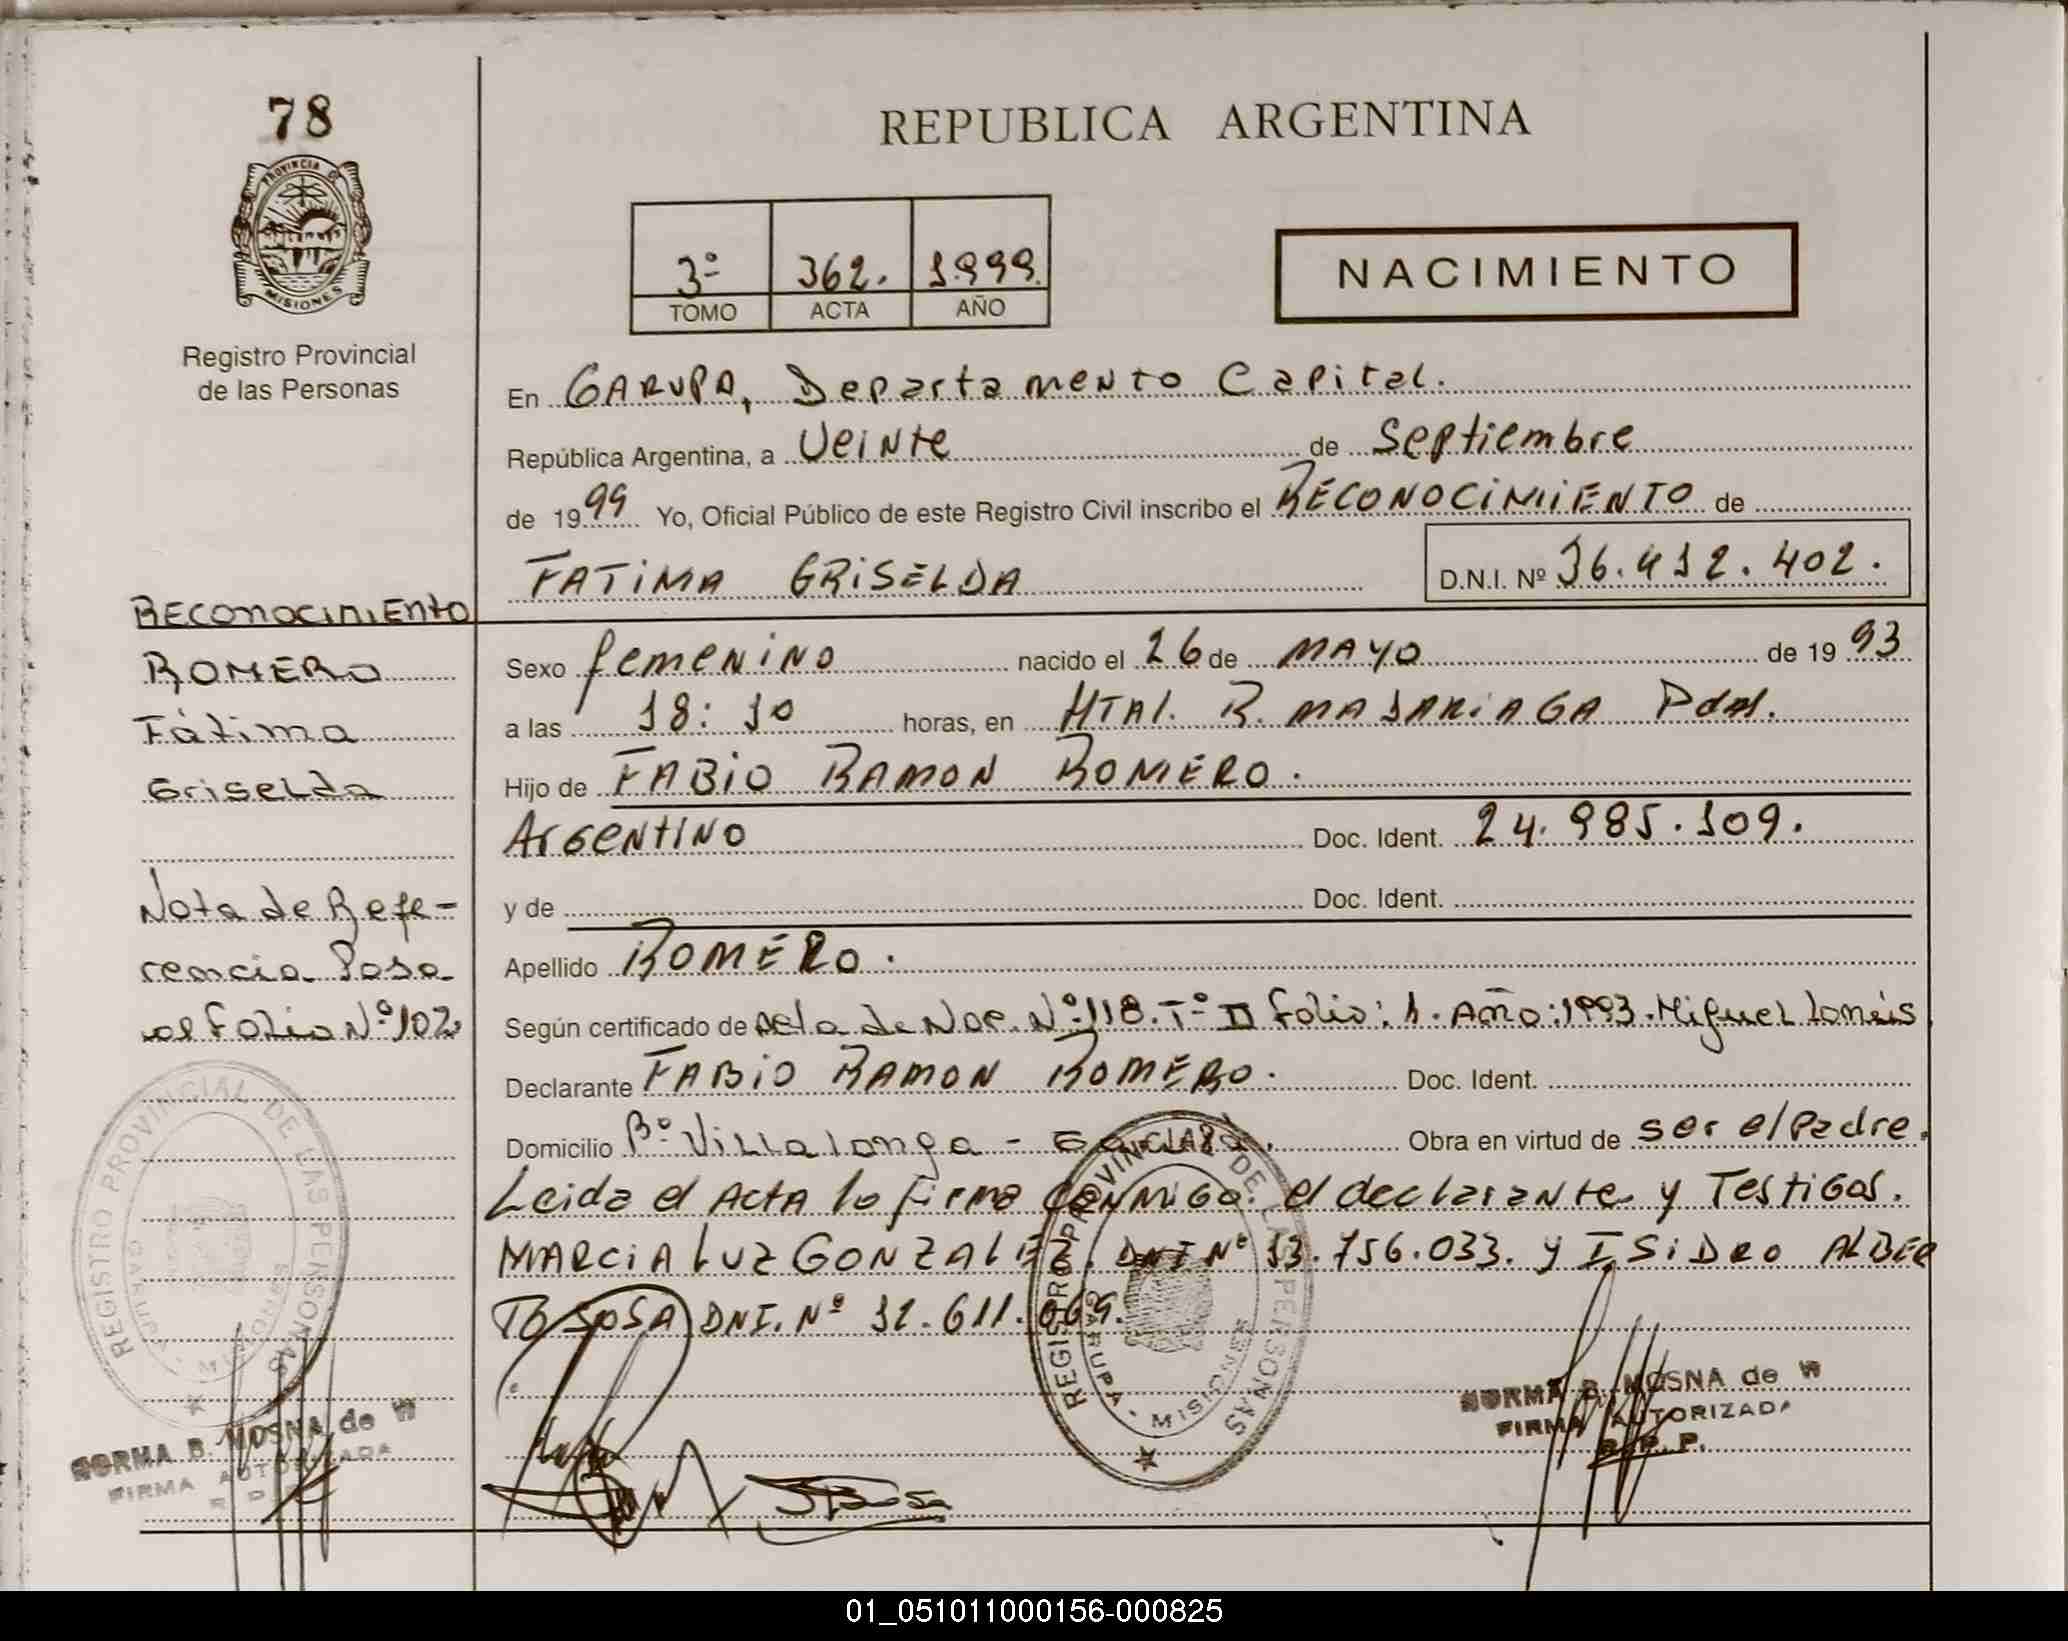 78
REPUBLICA ARGENTINA
PROVINCIA D
MISIONES
Registro Provincial
de las Personas
3º 362. 1999.
TOMO ACTA AÑO
NACIMIENTO
En GARUPA, Departamento Capital.
República Argentina, a Veinte de Septiembre
de 1999 Yo, Oficial Público de este Registro Civil inscribo el RECONOCIMIENTO de
FATIMA GRISELDA D.N.I. Nº 36.412.402.
RECONOCIMIENTO
ROMERO
Fátima
Griselda
Nota de Refe-
rencia Pasa
al Folio Nº 102
Sexo femenino nacido el 26 de MAYO de 1993
a las 18:10 horas, en HTAl. R. MADARIAGA Pdas.
Hijo de FABIO RAMON ROMERO.
Argentino Doc. Ident. 24.985.109.
y de Doc. Ident.
Apellido ROMERO.
Según certificado de Acta de Nac. Nº:118. Tº II Folio: 1. Año: 1993. Miguel Lanús
Declarante FABIO RAMON ROMERO. Doc. Ident.
Domicilio Bº Villalonga - Garupá. Obra en virtud de ser el Padre.
Leida el ACTA la firma conmigo. el declarante y Testigos.
MARCIA LUZ GONZALEZ. DNI Nº 13.756.033. y ISIDRO ALBER
TO SOSA DNI. Nº 12.611.069.
REGISTRO PROVINCIAL DE LAS PERSONAS
GARUPA - MISIONES
NORMA B. MOSNA de W
FIRMA AUTORIZADA
R. P. P.
REGISTRO PROVINCIAL DE LAS PERSONAS
GARUPA - MISIONES
NORMA B. MOSNA de W
FIRMA AUTORIZADA
R. P. P.
01_051011000156-000825